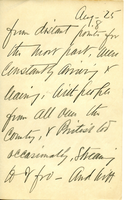 Aug. 25
from distant points for
the most part. Men
constantly driving &
leaving. And people
from all over the
Country, & British to
occasionally, Streaming
to & fro - And with